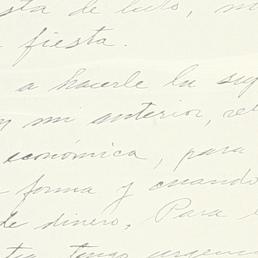 sta de luto, no
fiesta.
a hacerle la sup
mi anterior, re
económica, para
forma y cuando
de dinero, Para
tengo urgenc